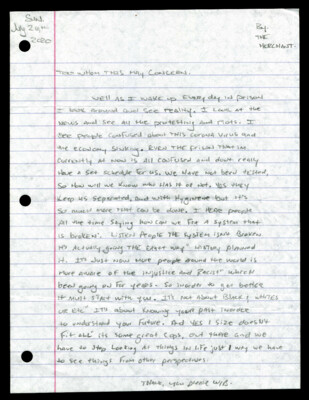 Sund
July 29th
2020
By:
THE
MERCHANT.
TO WHOM THIS MAY CONCERN.
WELL AS I WAKE UP EVERYDAY IN PRISON
I look around and see reality. I look at the
news and see all the protesting and riots. I
see people confused about THIS CORONA VIRUS AND
the economy sinking. EVEN THE PRISON THAT IM
CURRENTLY AT NOW IS All confused and don't really
Have a set schedule for us. We Have not been tested,
So How will we know who Has it or not. Yes they
Keep us separated, and with Hygiene but it's
so much more that can be done. I Hear people
all the time saying how can we fix a system that
is broken. LISTEN PEOPLE THE SYSTEM ISN'T BROKEN
It's Actually going THE RIGHT way" HISTORY planned
it. IT'S JUST NOW MORE people around the world is
more aware of the injustice and Racist which
been going on for years. So in order to get better
it MUST START with you. IT'S not about Black & whites
IT'S about knowing your past in order
to understand your future. And YES 1 size doesn't
Fit all it's some great cops, out there and we
have to stop looking at things in life just 1 way we have
to see things from other perspectives.
Thank, you